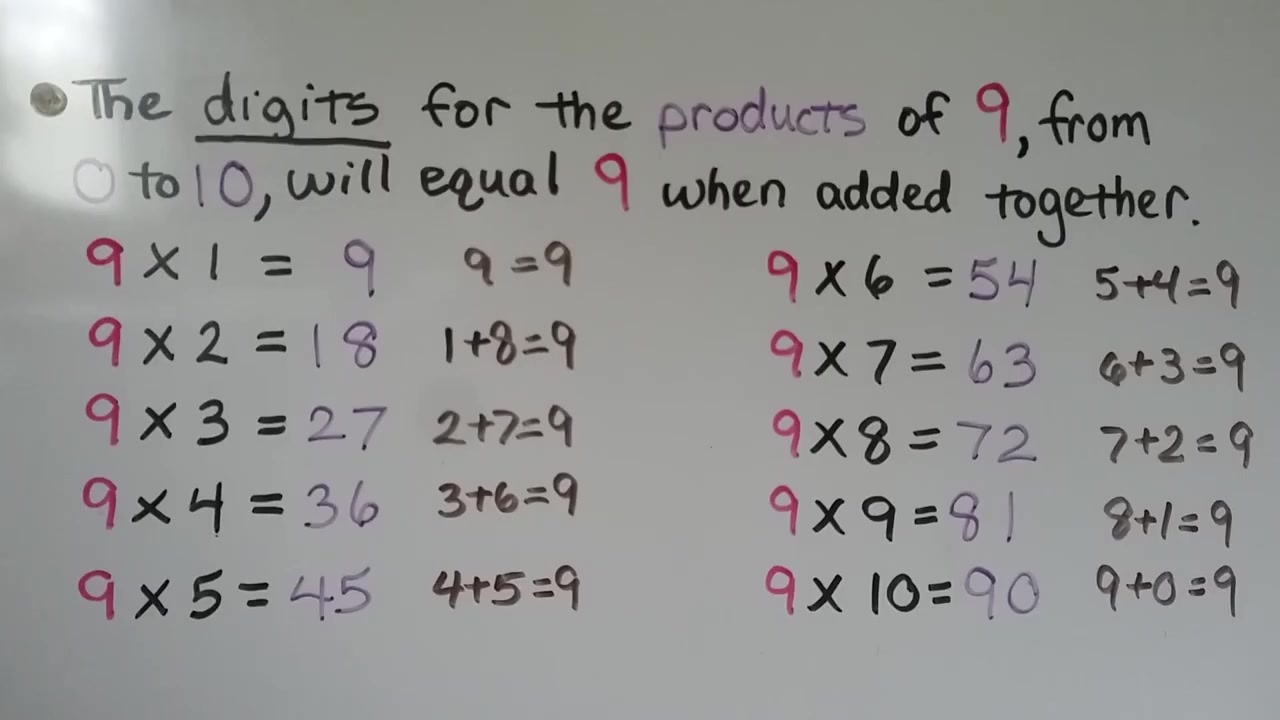 • The digits for the products of 9, from
0 to 10, will equal 9 when added together.
9 x 1 = 9 9 = 9
9 x 2 = 18 1+8=9
9 x 3 = 27 2+7=9
9 x 4 = 36 3+6=9
9 x 5 = 45 4+5=9
9 x 6 = 54 5+4=9
9 x 7 = 63 6+3=9
9 x 8 = 72 7+2=9
9 x 9 = 81 8+1=9
9 x 10 = 90 9+0=9